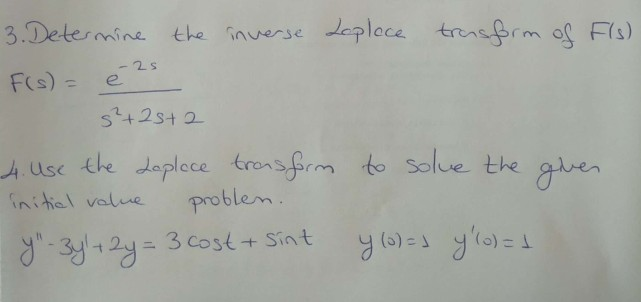 3. Determine the inverse Laplace transform of F(s)
F(s) = e^-2s / s²+2s+2
4. Use the Laplace transform to solve the given
initial value problem.
y'' - 3y' + 2y = 3 cost + sint y(0)=1 y'(0)=1